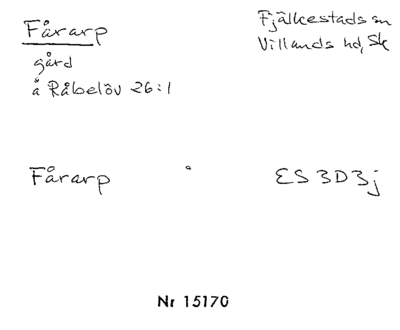 Fårarp
Fjälkestads sn
Villands hd, Sk
gård
å Råbelöv 26:1
Fårarp
ES 3D3j
Nr 15170